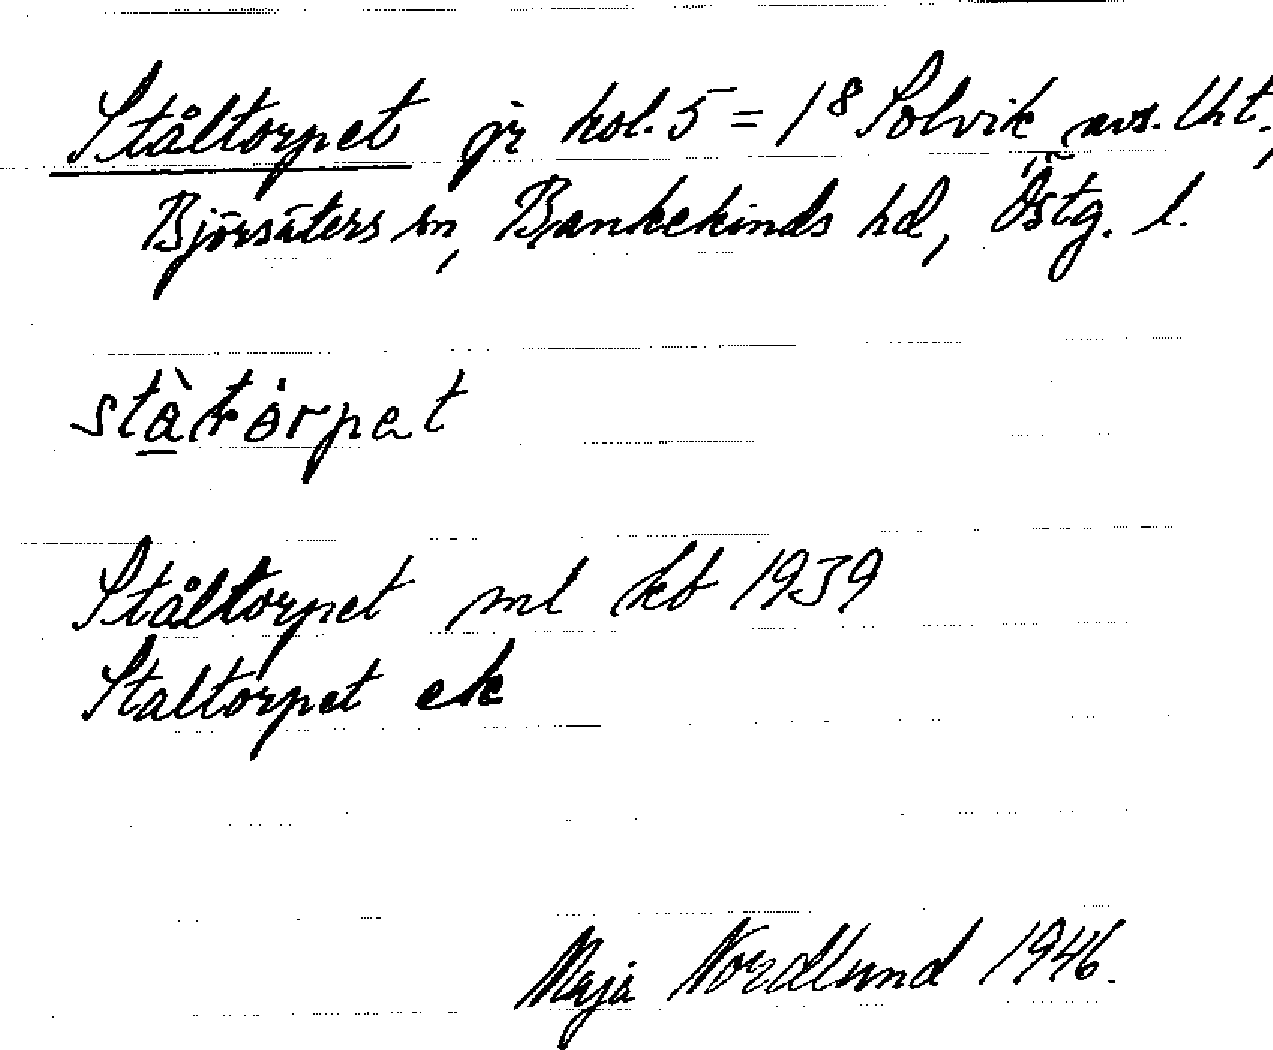 Ståltorpet jr kol. 5 = 1⁸ Solvik avs. lht,
Björsäters sn, Bankekinds hd, Östg. l.
stàtȯrpet
Ståltorpet ml kb 1939
Staltorpet ek
Maja Nordlund 1946.